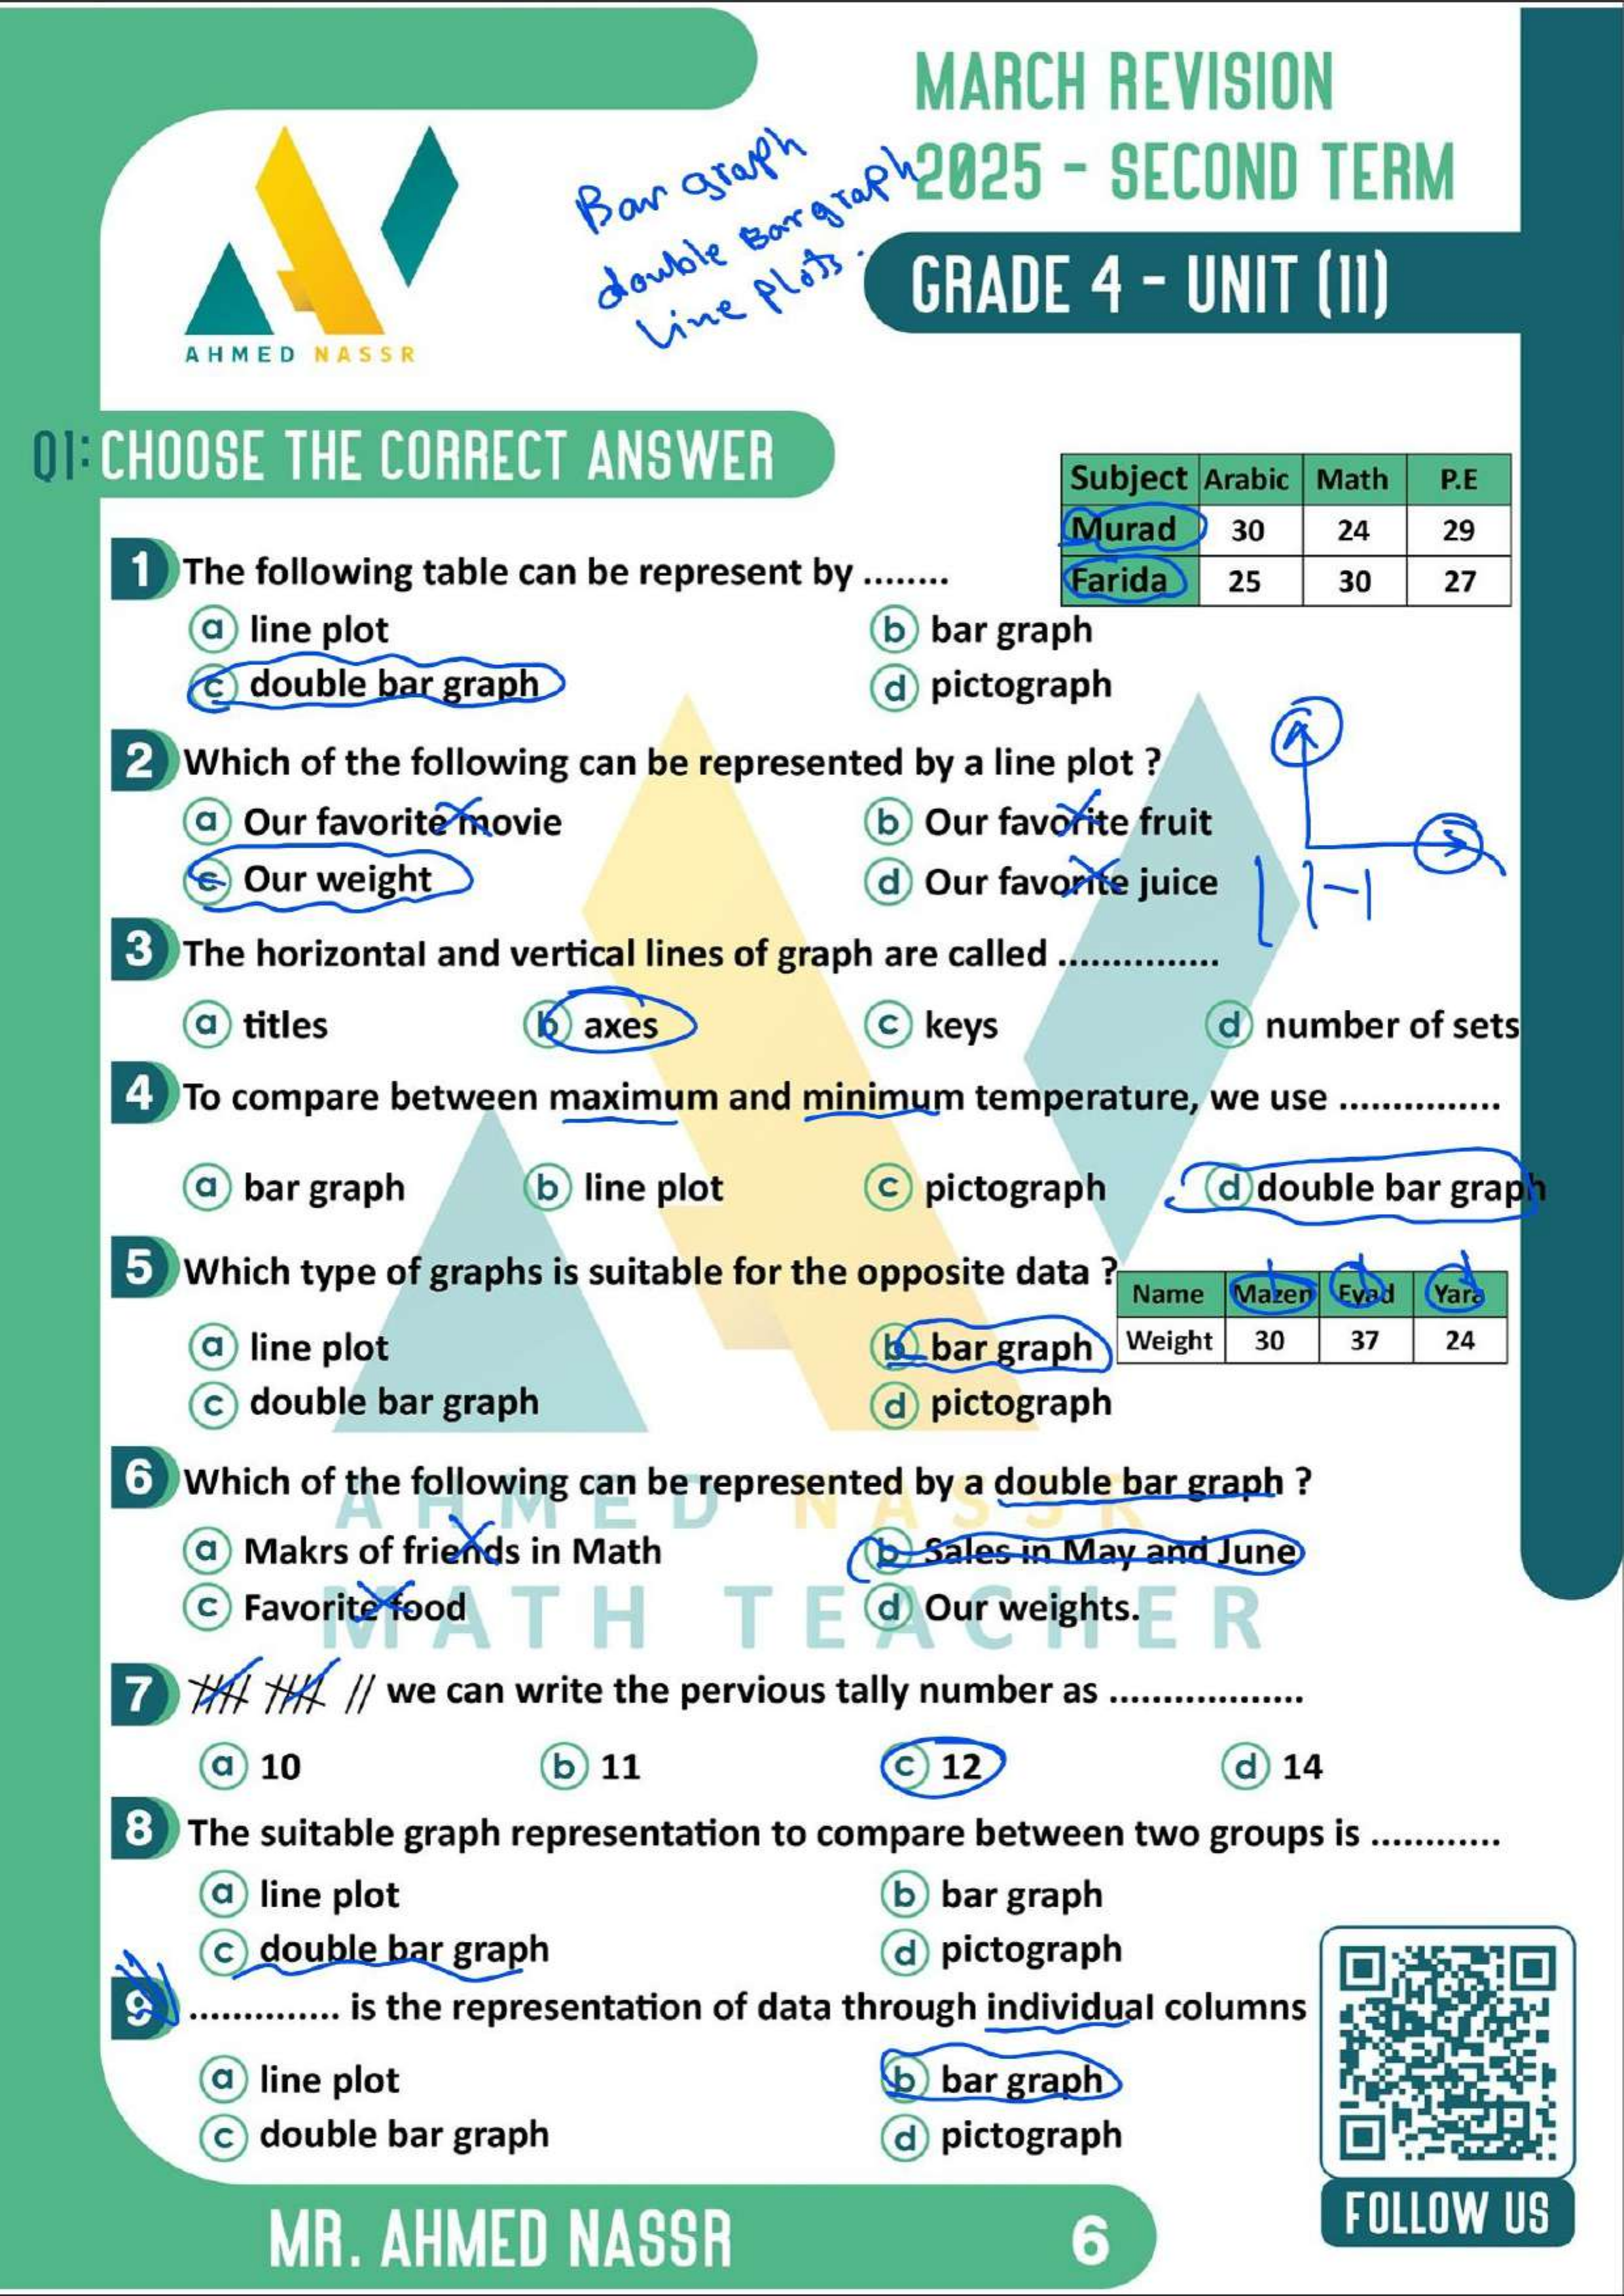 MARCH REVISION
2025 - SECOND TERM
GRADE 4 - UNIT (11)
Bar graph
double Bar graph
Line Plots.
AHMED NASSR
Q1: CHOOSE THE CORRECT ANSWER
Subject Arabic Math P.E
Murad 30 24 29
Farida 25 30 27
1 The following table can be represent by ........
a line plot b bar graph
c double bar graph d pictograph
2 Which of the following can be represented by a line plot ?
a Our favorite movie b Our favorite fruit
c Our weight d Our favorite juice
3 The horizontal and vertical lines of graph are called ...............
a titles b axes c keys d number of sets
4 To compare between maximum and minimum temperature, we use ...............
a bar graph b line plot c pictograph d double bar graph
5 Which type of graphs is suitable for the opposite data ?
Name Mazen Eyad Yara
Weight 30 37 24
a line plot b bar graph
c double bar graph d pictograph
6 Which of the following can be represented by a double bar graph ?
a Makrs of friends in Math b Sales in May and June
c Favorite food d Our weights.
AHMED NASSR
MATH TEACHER
7 we can write the pervious tally number as ..................
a 10 b 11 c 12 d 14
8 The suitable graph representation to compare between two groups is ............
a line plot b bar graph
c double bar graph d pictograph
9 .............. is the representation of data through individual columns
a line plot b bar graph
c double bar graph d pictograph
MR. AHMED NASSR 6
FOLLOW US